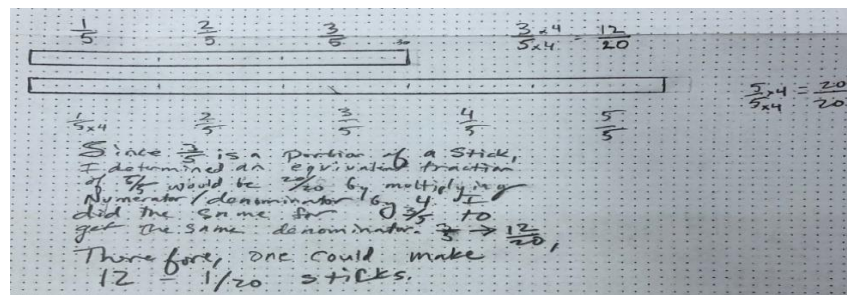 1/5 2/5 3/5 3×4/5×4 = 12/20
5×4/5×4 = 20/20
1/5×4 2/5 3/5 4/5 5/5
Since 3/5 is a portion of a stick,
I determined an equivalent fraction
of 5/5 would be 20/20 by multiplying
Numerator/denominator by 4. I
did the same for 3/5 to
get the same denominator. 3/5 → 12/20,
Therefore, one could make
12 - 1/20 sticks.